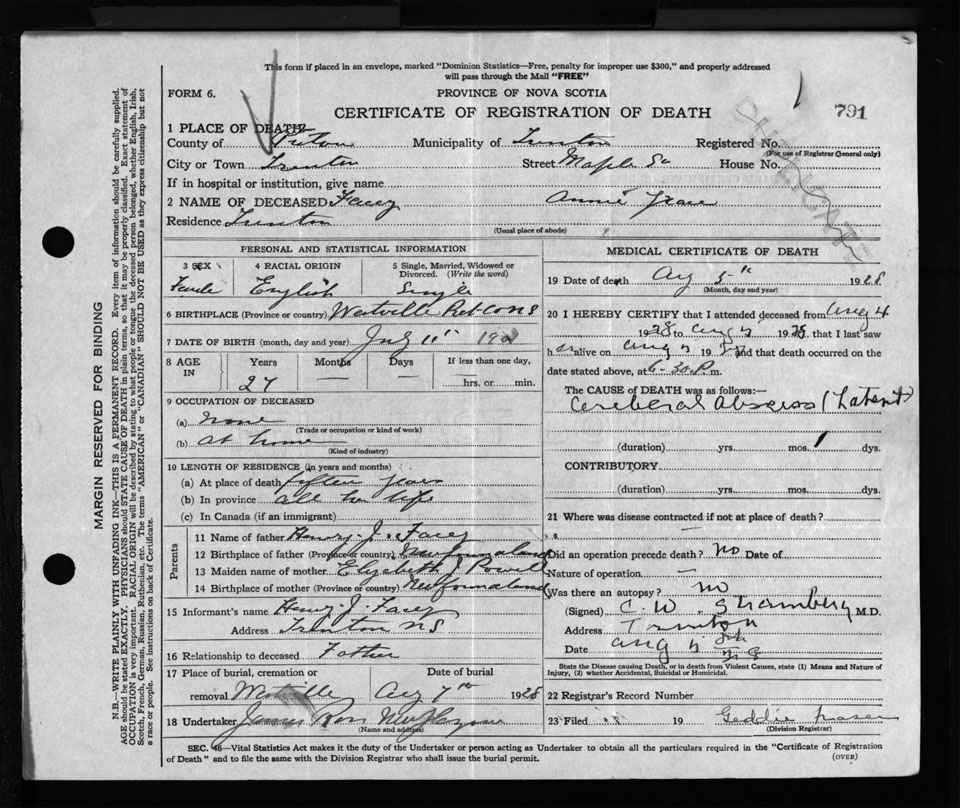 This form if placed in an envelope, marked "Dominion Statistics—Free, penalty for improper use $300," and properly addressed
will pass through the Mail "FREE"
FORM 6.
PROVINCE OF NOVA SCOTIA
CERTIFICATE OF REGISTRATION OF DEATH
791
1 PLACE OF DEATH—
County of Pictou Municipality of Trenton Registered No.
(For use of Registrar General only)
City or Town Trenton Street Maple St House No.
If in hospital or institution, give name
2 NAME OF DECEASED Facey Annie
Residence Trenton
(Usual place of abode)
PERSONAL AND STATISTICAL INFORMATION
3 SEX 4 RACIAL ORIGIN 5 Single, Married, Widowed or Divorced. (Write the word)
Female English Single
6 BIRTHPLACE (Province or country) Westville Pict Co NS
7 DATE OF BIRTH (month, day and year) July 11 1901
8 AGE IN Years Months Days If less than one day,
27 — — hrs. or min.
9 OCCUPATION OF DECEASED
(a) none
(Trade or occupation or kind of work)
(b) at home
(Kind of industry)
10 LENGTH OF RESIDENCE (in years and months)
(a) At place of death fifteen years
(b) In province all her life
(c) In Canada (if an immigrant)
Parents
11 Name of father Henry J. Facey
12 Birthplace of father (Province or country) Newfoundland
13 Maiden name of mother Elizabeth J Powell
14 Birthplace of mother (Province or country) Newfoundland
15 Informant's name Henry J. Facey
Address Trenton NS
16 Relationship to deceased Father
17 Place of burial, cremation or removal Westville Date of burial Aug 7th 1928
18 Undertaker James Ross New Glasgow
(Name and address)
MEDICAL CERTIFICATE OF DEATH
19 Date of death Aug 5th 1928
(Month, day and year)
20 I HEREBY CERTIFY that I attended deceased from Aug 4
1928 to Aug 5 1928 that I last saw
h er alive on Aug 5 19 and that death occurred on the
date stated above, at 6-30 P. m.
The CAUSE OF DEATH was as follows:—
Cerebral Abscess (Latent)
(duration) yrs. mos. 1 dys.
CONTRIBUTORY
(duration) yrs. mos. dys.
21 Where was disease contracted if not at place of death?
—
Did an operation precede death? No Date of
Nature of operation —
Was there an autopsy? no
(Signed) C. W. Stramberg M.D.
Address Trenton
Date Aug 5
State the Disease causing Death, or in death from Violent Causes, state (1) Means and Nature of
Injury, (2) whether Accidental, Suicidal or Homicidal.
22 Registrar's Record Number
23 Filed 19 Geddie Fraser
(Division Registrar)
SEC. 46—Vital Statistics Act makes it the duty of the Undertaker or person acting as Undertaker to obtain all the particulars required in the "Certificate of Registration
of Death" and to file the same with the Division Registrar who shall issue the burial permit.
(OVER)
MARGIN RESERVED FOR BINDING
N.B.—WRITE PLAINLY WITH UNFADING INK—THIS IS A PERMANENT RECORD. Every item of information should be carefully supplied.
AGE should be stated EXACTLY. PHYSICIANS should STATE CAUSE OF DEATH in plain terms, so that it may be properly classified. Exact statement of
OCCUPATION is very important. RACIAL ORIGIN will be described by stating to what people or tongue the deceased person belonged, whether English, Irish,
Scotch, French, German, Russian, Ruthenian, etc. The terms "AMERICAN" or "CANADIAN" SHOULD NOT BE USED as they express citizenship but not
a race or people. See instructions on back of Certificate.